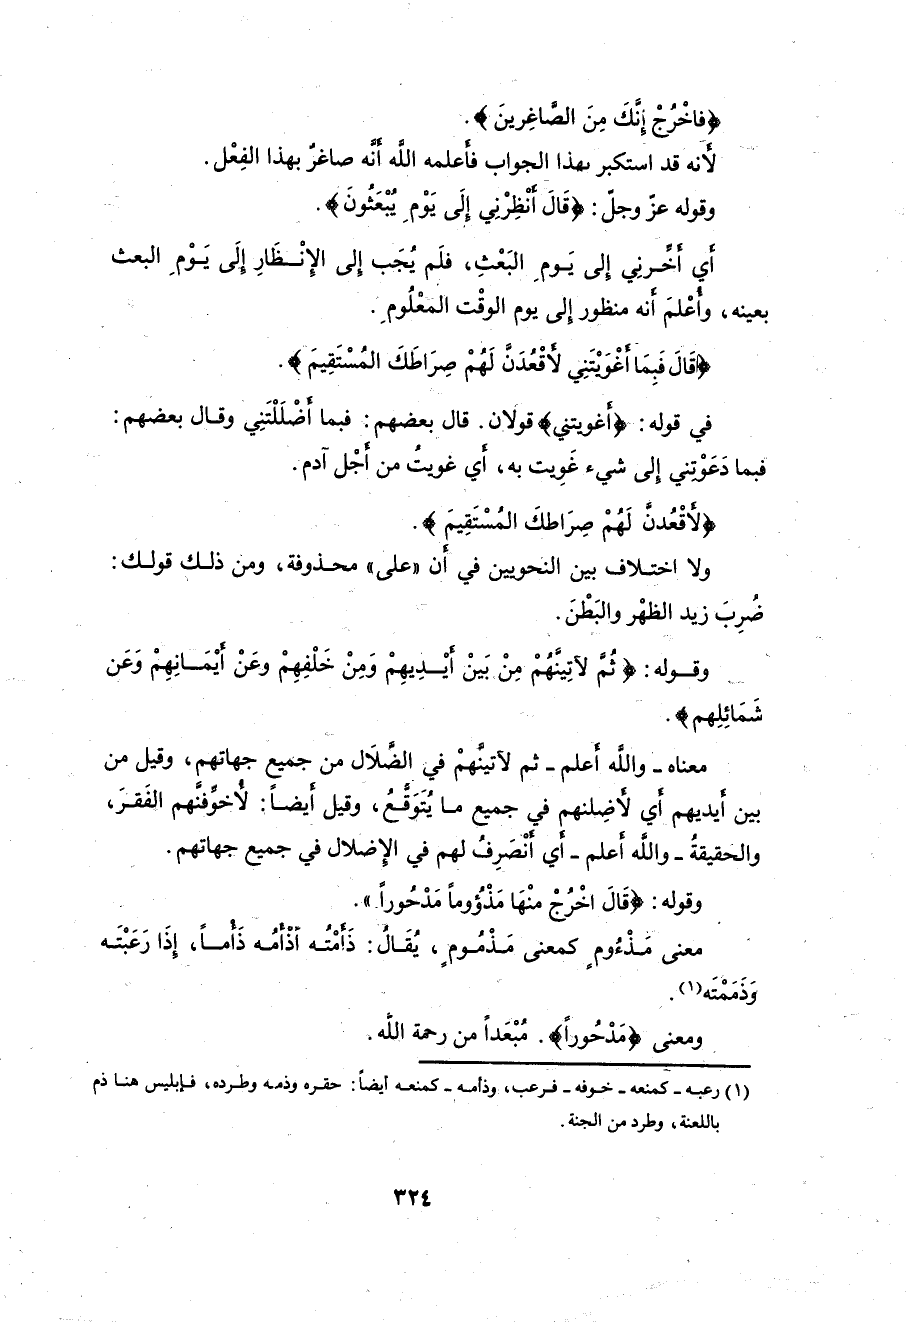 ﴿فاخْرُجْ إِنَّكَ مِنَ الصَّاغِرينَ﴾.
لأنه قد استكبر بهذا الجواب فأعلمه اللَّه أنَّه صاغرٌ بهذا الفِعْل.
وقوله عزّ وجلّ: ﴿قَالَ أَنْظِرْنِي إِلَى يَوْمِ يُبْعَثُونَ﴾.
أي أَخِّرني إلى يَومِ البَعْثِ، فلَم يُجَب إلى الإنْظَارِ إلَى يَوْمِ البعث
بعينه، وأُعْلمَ أنه منظور إلى يوم الوقْت المعْلُومِ.
﴿قَالَ فَبِمَا أَغْوَيْتَنِي لأَقْعُدَنَّ لَهُمْ صِرَاطَكَ المُسْتَقِيمَ﴾.
في قوله: ﴿أغويتني﴾ قولان. قال بعضهم: فبما أَضْلَلْتَنِي وقال بعضهم:
فبما دَعَوْتِني إلى شيء غَوِيت به، أي غويتُ من أَجْل آدم.
﴿لأَقْعُدنَّ لَهُمْ صِرَاطكَ المُسْتَقِيمَ﴾.
ولا اختلاف بين النحويين في أن «على» محذوفة، ومن ذلك قولك:
ضُرِبَ زيد الظهْر والبَطْنَ.
وقوله: ﴿ثُمَّ لآتِيَنَّهُمْ مِنْ بَيْنِ أَيْدِيهِمْ وَمِنْ خَلْفِهِمْ وعَنْ أَيْمَانِهِمْ وَعَن
شَمَائِلِهم﴾.
معناه - واللَّه أعلم - ثم لآتينَّهمْ في الضَّلَال من جميع جهاتهم، وقيل من
بين أيديهم أي لأضِلنهم في جميع ما يُتَوَقَّعُ، وقيل أيضاً: لأخوِّفنَّهم الفَقرَ،
والحقيقةُ - واللَّه أعلم - أي أتْصَرِفُ لهم في الإضلال في جميع جهاتهم.
وقوله: ﴿قَالَ اخْرُجْ منْهَا مَذْؤُوماً مَدْحُوراً﴾.
معنى مَذْءُومٍ كمعنى مَذْمُومٍ، يُقَالُ: ذَأَمْتُه أَذْأَمُه ذَأْماً، إِذَا رَعَبْتَه
وَذَمَمْتَه(١).
ومعنى ﴿مَدْحُوراً﴾. مُبْعَداً من رحمة اللَّه.
(١) رعبه - كمنعه - خوفه - فرعب، وذأمه - كمنعه أيضاً: حقره وذمه وطرده، فإبليس هنا ذم
باللعنة، وطرد من الجنة.
٣٢٤